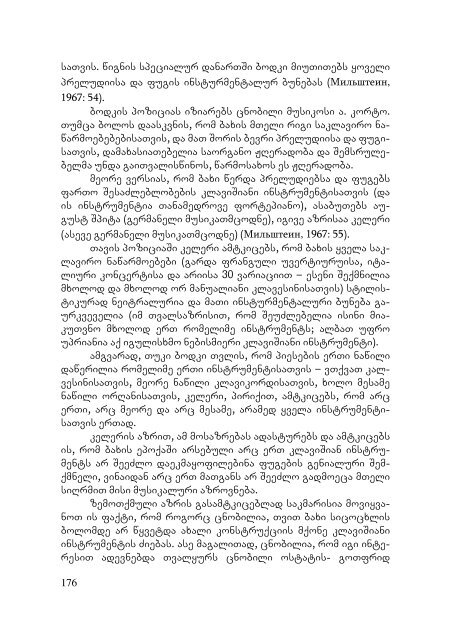 სათვის. წიგნის სპეციალურ დანართში ბოდკი მიუთითებს ყოველი
პრელუდიისა და ფუგის ინსტურმენტალურ ბუნებას (Мильштейн,
1967: 54).
ბოდკის პოზიციას იზიარებს ცნობილი მუსიკოსი ა. კორტო.
თუმცა ბოლოს დაასკვნის, რომ ბახის მთელი რიგი საკლავირო ნა-
წარმოებებებისათვის, და მათ შორის ბევრი პრელუდიისა და ფუგი-
სათვის, დამახასიათებელია საორგანო ჟღერადობა და შემსრულე-
ბელმა უნდა გაითვალისწინოს, წარმოსახოს ეს ჟღერადობა.
მეორე ვერსიას, რომ ბახი წერდა პრელუდიებსა და ფუგებს
ფართო შესაძლებლობების კლავიშიანი ინსტრუმენტისათვის (და
ის ინსტრუმენტია თანამედროვე ფორტეპიანო), ასაბუთებს აუ-
გუსტ შპიტა (გერმანელი მუსიკათმცოდნე), იგივე აზრისაა კელერი
(ასევე გერმანელი მუსიკათმცოდნე) (Мильштейн, 1967: 55).
თავის პოზიციაში კელერი ამტკიცებს, რომ ბახის ყველა საკ-
ლავირო ნაწარმოებები (გარდა ფრანგული უვერტიურუისა, იტა-
ლიური კონცერტისა და არიისა 30 ვარიაციით – ესენი შექმნილია
მხოლოდ და მხოლოდ ორ მანუალიანი კლავესინისათვის) სტილის-
ტიკურად ნეიტრალურია და მათი ინსტურმენტალური ბუნება გა-
ურკვეველია (იმ თვალსაზრისით, რომ შეუძლებელია ისინი მია-
კუთვნო მხოლოდ ერთ რომელიმე ინსტრუმენტს; ალბათ უფრო
უპრიანია აქ იგულისხმო ნებისმიერი კლავიშიანი ინსტრუმენტი).
ამგვარად, თუკი ბოდკი თვლის, რომ პიესების ერთი ნაწილი
დაწერილია რომელიმე ერთი ინსტრუმენტისათვის – ვთქვათ კალ-
ვესინისათვის, მეორე ნაწილი კლავიკორდისათვის, ხოლო მესამე
ნაწილი ორღანისათვის, კელერი, პირიქით, ამტკიცებს, რომ არც
ერთი, არც მეორე და არც მესამე, არამედ ყველა ინსტრუმენტი-
სათვის ერთად.
კელერის აზრით, ამ მოსაზრებას ადასტურებს და ამტკიცებს
ის, რომ ბახის ეპოქაში არსებული არც ერთ კლავიშიან ინსტრუ-
მენტს არ შეეძლო დაეკმაყოფილებინა ფუგების გენიალური შემ-
ქმნელი, ვინაიდან არც ერთ მათგანს არ შეეძლო გადმოეცა მთელი
სიღრმით მისი მუსიკალური აზროვნება.
ზემოთქმული აზრის გასამტკიცებლად საკმარისია მოვიყვა-
ნოთ ის ფაქტი, რომ როგორც ცნობილია, თვით ბახი სიცოცხლის
ბოლომდე არ წყვეტდა ახალი კონსტრუქციის მქონე კლავიშიანი
ინსტრუმენტის ძიებას. ასე მაგალითად, ცნობილია, რომ იგი ინტე-
რესით ადევნებდა თვალყურს ცნობილი ოსტატის- გოთფრიდ
176